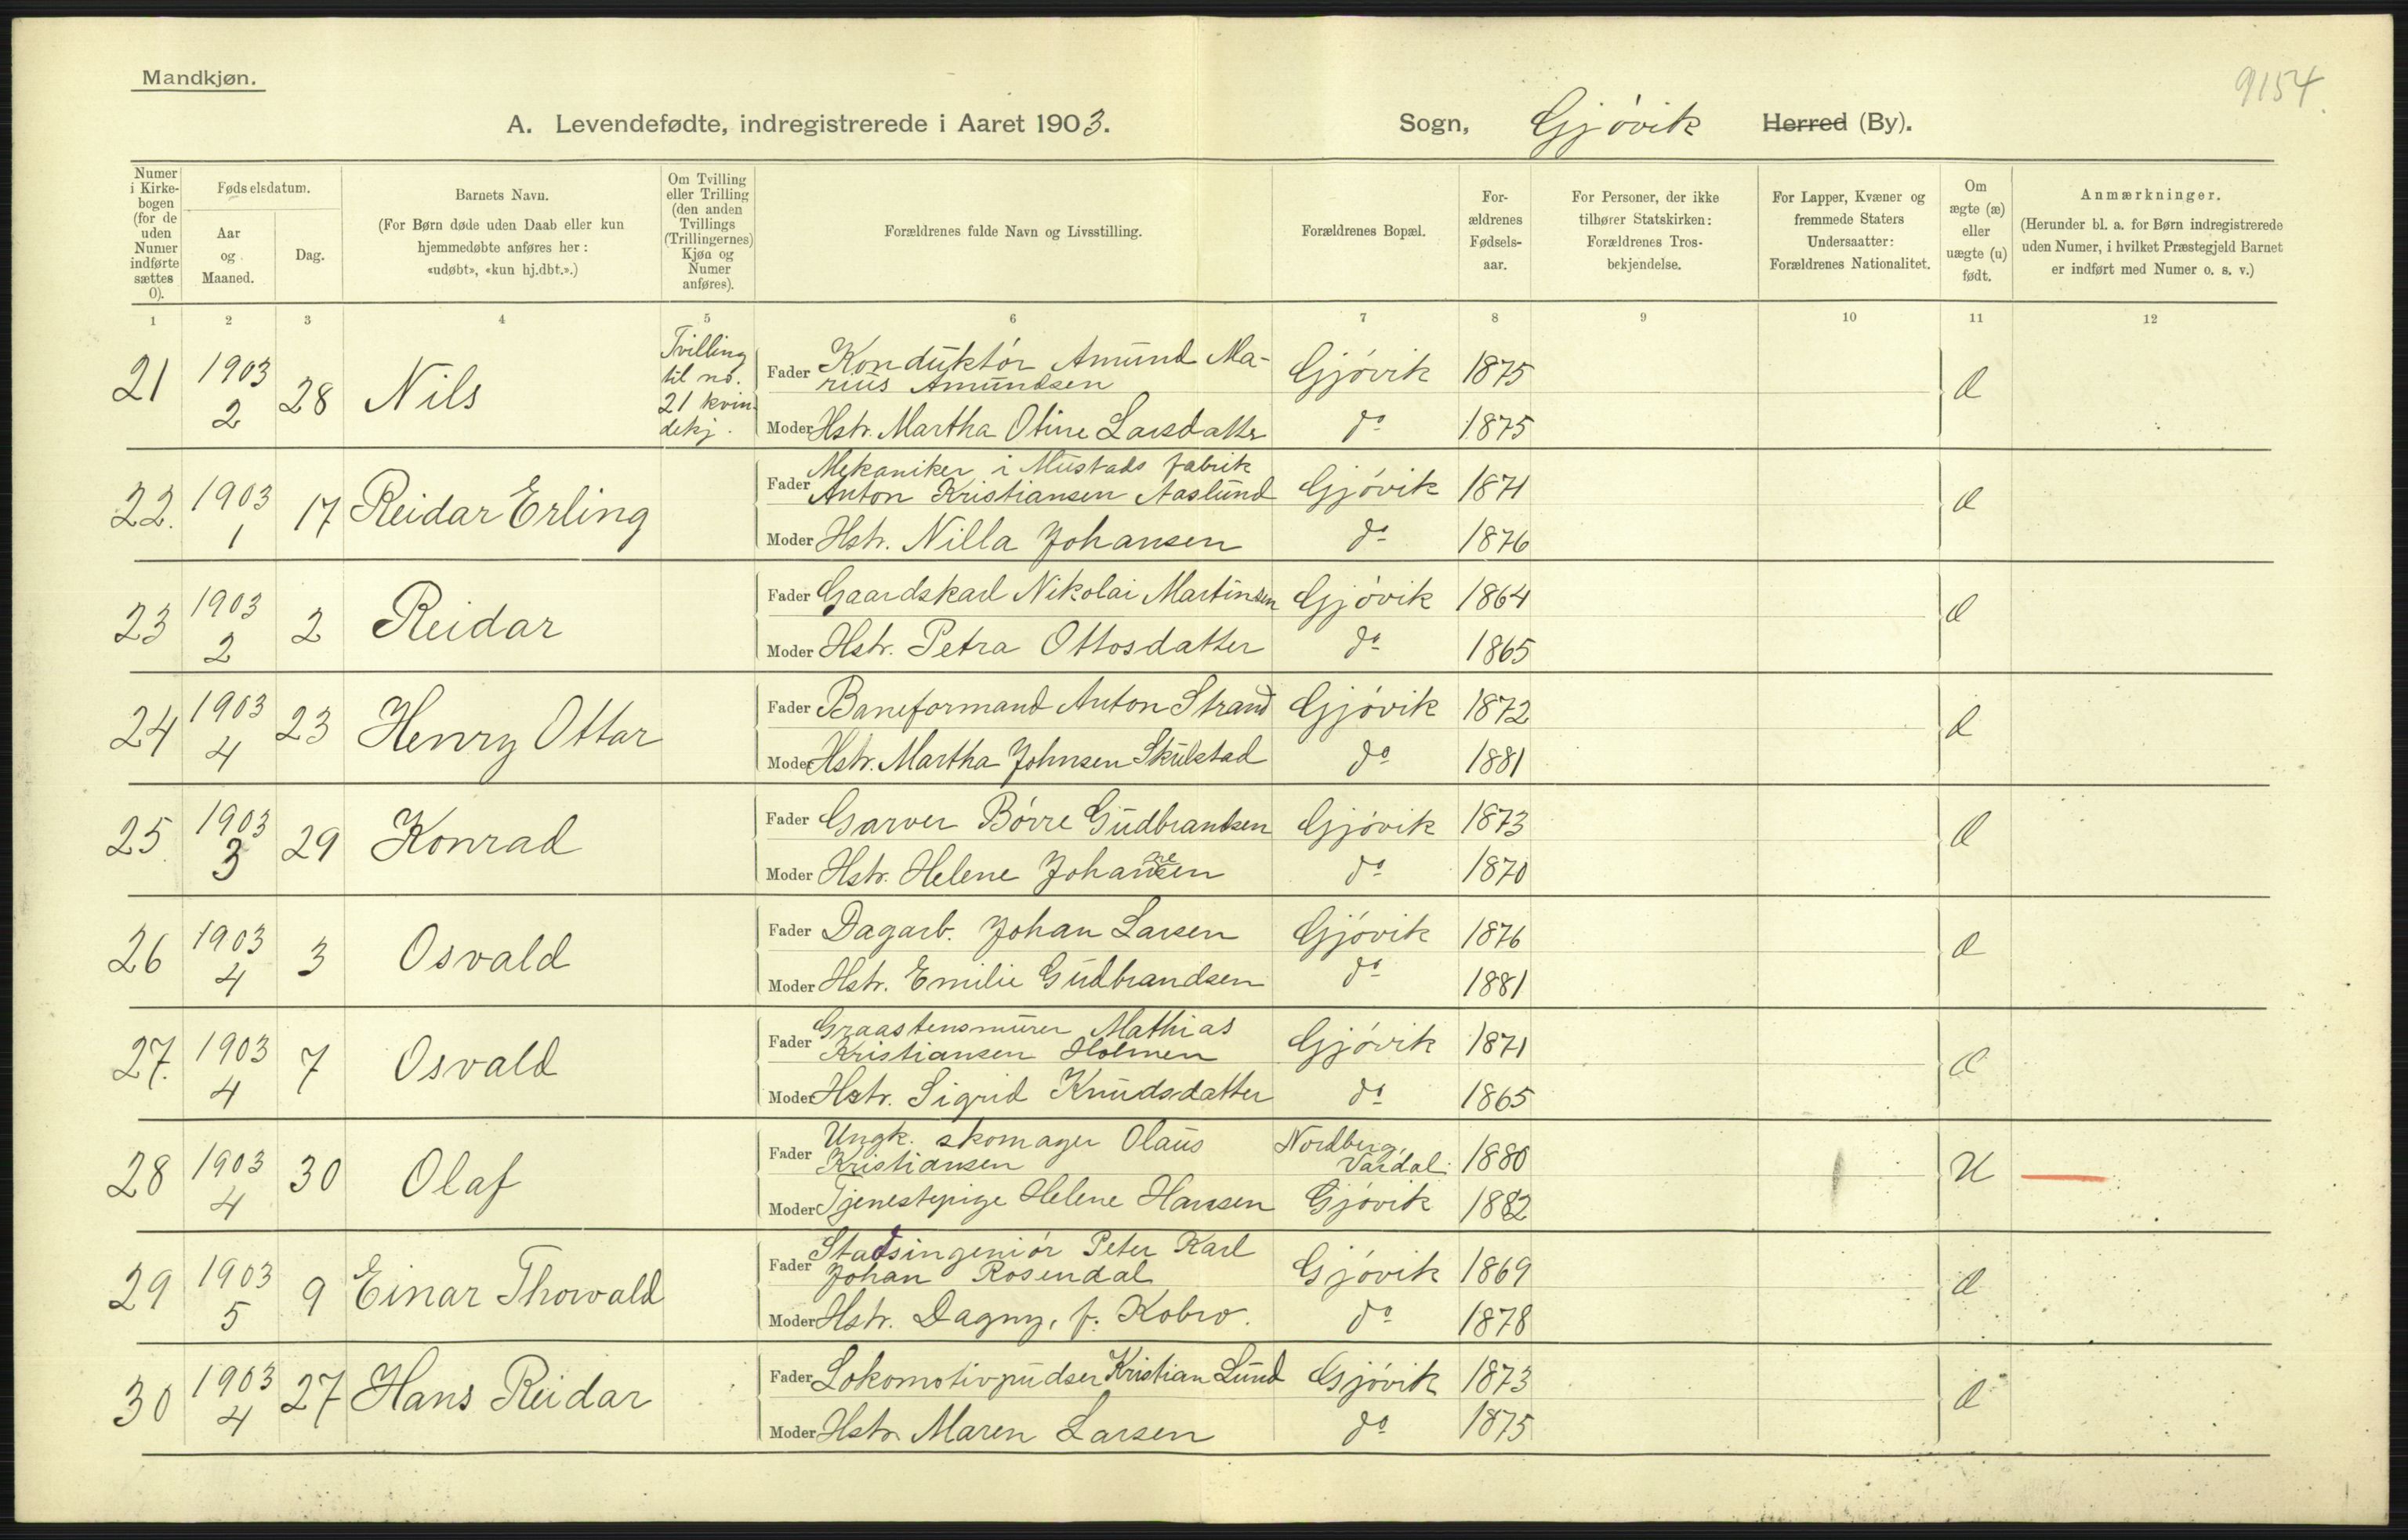 Mandkjøn.
9154.
A. Levendefødte, indregistrerede i Aaret 1903.
Sogn, Gjøvik Herred (By).
Numer i Kirkebogen (for de uden Numer indførte sættes 0).
Fødselsdatum.
Aar og Maaned.
Dag.
Barnets Navn.
(For Børn døde uden Daab eller kun
hjemmedøbte anføres her:
«udøbt», «kun hj.dbt.».)
Om Tvilling
eller Trilling
(den anden
Tvillings
(Trillingernes)
Kjøn og
Numer
anføres).
Forældrenes fulde Navn og Livsstilling.
Forældrenes Bopæl.
For-
ældrenes
Fødsels-
aar.
For Personer, der ikke
tilhører Statskirken:
Forældrenes Tros-
bekjendelse.
For Lapper, Kvæner og
fremmede Staters
Undersaatter:
Forældrenes Nationalitet.
Om
ægte (æ)
eller
uægte (u)
født.
Anmærkninger.
(Herunder bl. a. for Børn indregistrerede
uden Numer, i hvilket Præstegjeld Barnet
er indført med Numer o. s. v.)
1 2 3 4 5 6 7 8 9 10 11 12
21 1903 2 28 Nils
Tvilling
til no.
21 kvin
dekj.
Fader Konduktør Amund Ma-
rius Amundsen Gjøvik 1875 Æ
Moder Hstr. Martha Otine Larsdatter do 1875
22. 1903 1 17 Reidar Erling
Fader Mekaniker i Mustads fabrik
Anton Kristiansen Aaslund Gjøvik 1871 Æ
Moder Hstr. Nilla Johansen do 1876
23 1903 2 2 Reidar
Fader Gaardskarl Nikolai Martinsen Gjøvik 1864 Æ
Moder Hstr. Petra Ottosdatter do 1865
24 1903 4 23 Henry Ottar
Fader Baneformand Anton Strand Gjøvik 1872 Æ
Moder Hstr. Martha Johnsen Skulstad do 1881
25 1903 3 29 Konrad
Fader Garver Børre Gudbrandsen Gjøvik 1873 Æ
Moder Hstr. Helene do 1870
26 1903 4 3 Osvald
Fader Dagarb. Johan Larsen Gjøvik 1876 Æ
Moder Hstr. Emilie Gudbrandsen do 1881
27. 1903 4 7 Osvald
Fader Graastensmurer Mathias
Kristiansen Holmen Gjøvik 1871 Æ
Moder Hstr. Sigrid Knudsdatter do 1865
28 1903 4 30 Olaf
Fader Ungk. skomager Olaus
Kristiansen Nordberg, Vardal. 1880 U
Moder Tjenestepige Helene Hansen Gjøvik 1882
29 1903 5 9 Einar Thorvald
Fader Stadsingeniør Peter Karl
Johan Rosendal Gjøvik 1869 Æ
Moder Hstr. Dagny, f. Kobro. do 1878
30 1903 4 27 Hans Reidar
Fader Lokomotivpudser Kristian Lund Gjøvik 1873 Æ
Moder Hstr Maren Larsen do 1875